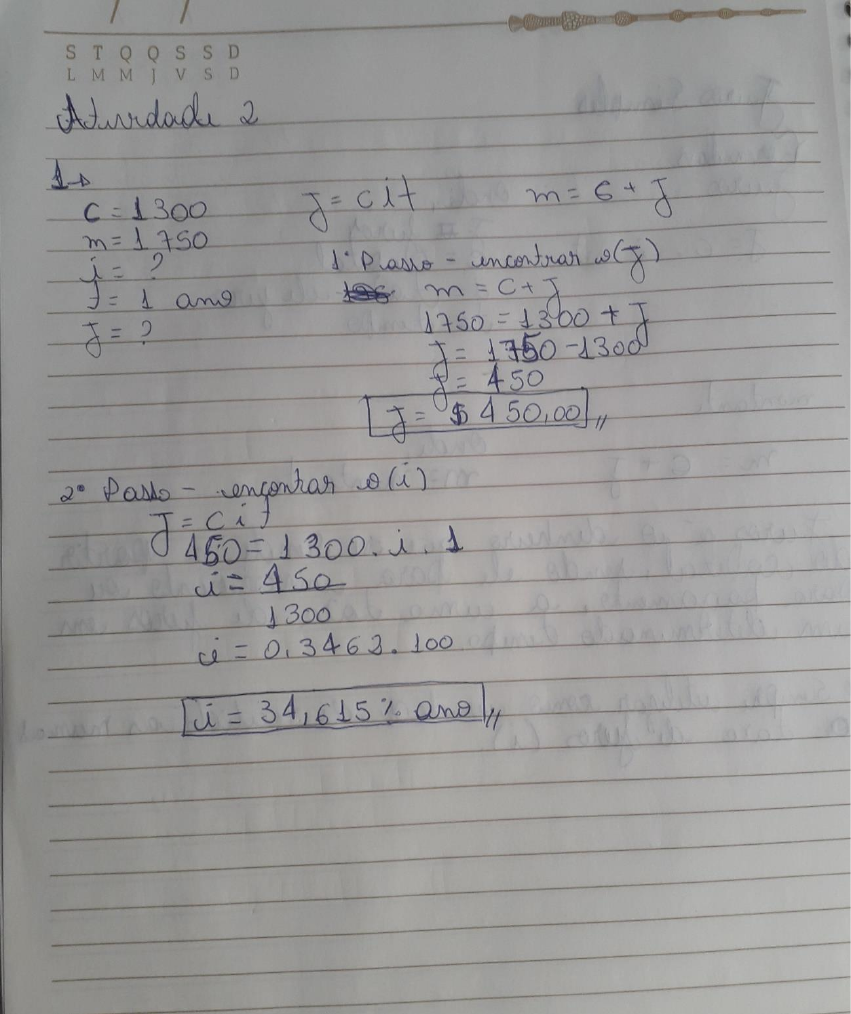 S T Q Q S S D
L M M J V S D
Atividade 2
1→
C = 1300
m = 1750
i = ?
t = 1 ano
J = ?
J = cit
m = C + J
1° Passo - encontrar o (J)
m = C + J
1750 = 1300 + J
J = 1750 - 1300
J = 450
J = $ 450,00 //
2° Passo - encontrar o (i)
J = C i t
450 = 1300 . i . 1
i = 450
1300
i = 0,3462 . 100
i = 34,615 % ano //